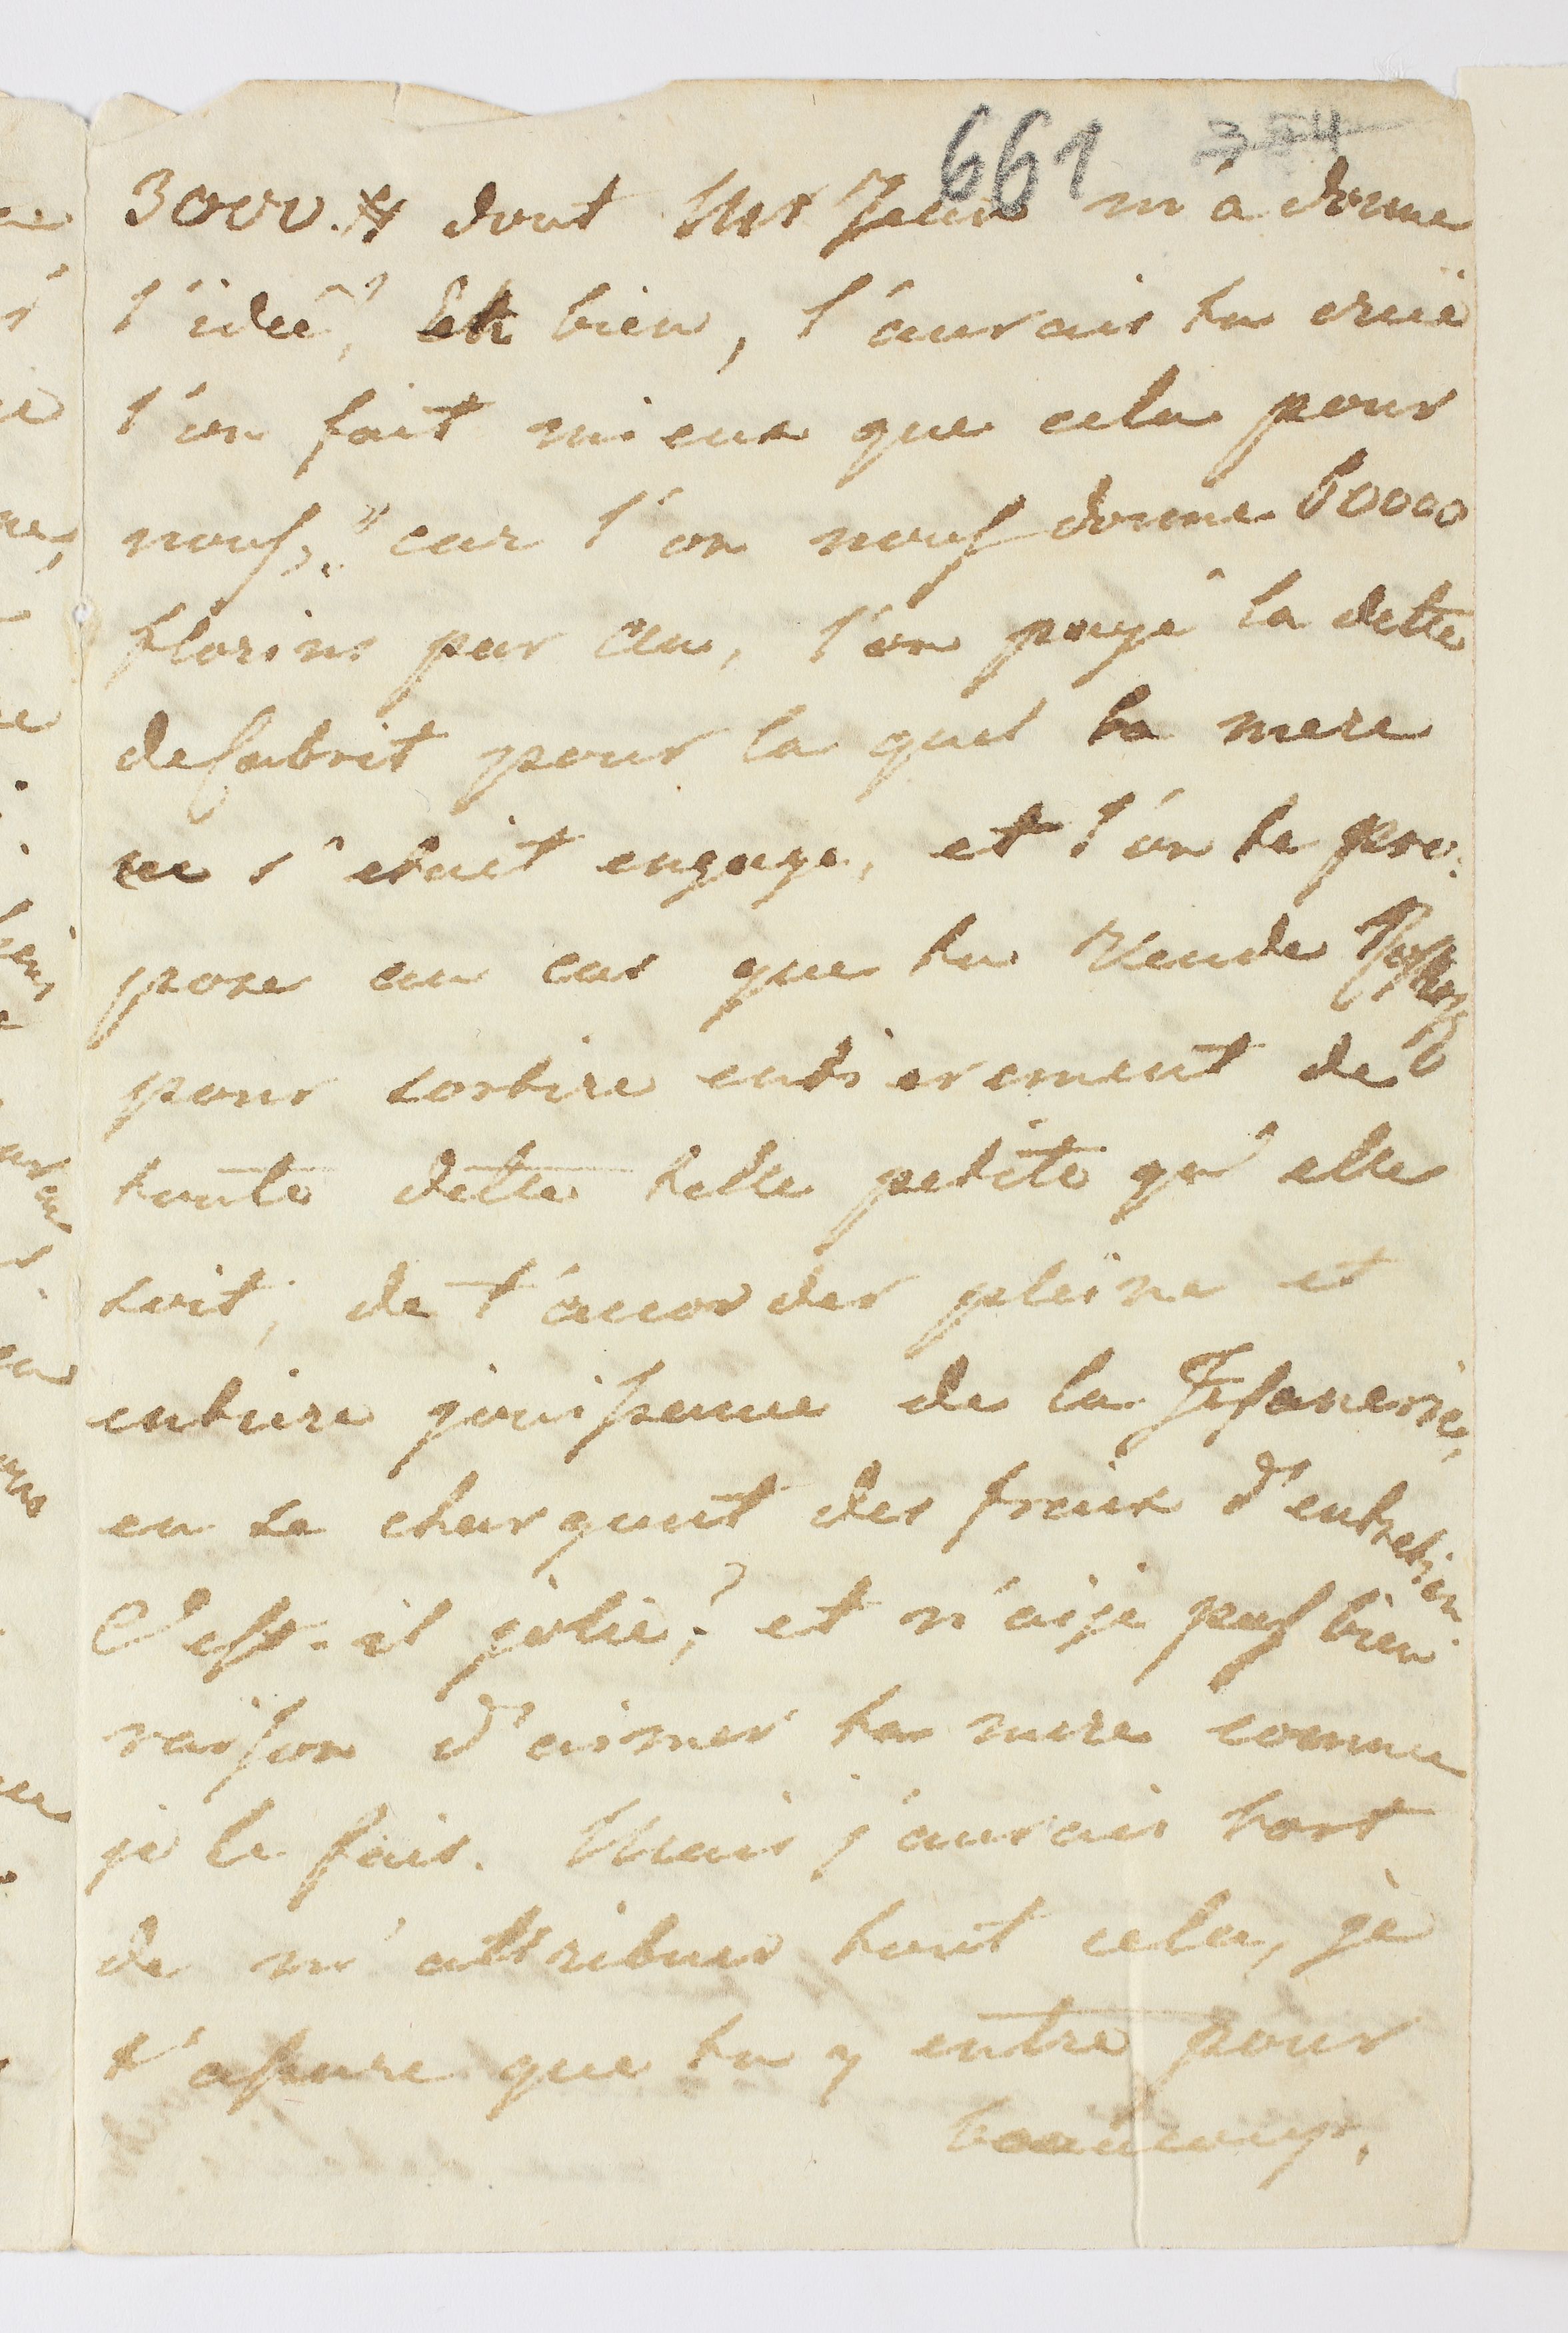 661 354
30000.# dont Mr Jean m'a donne
l'idée? Eh bien, l'aurais tu crue
l'on fait mieux que cela pour
nous, car l'on nous donne 60000
florins par an, l'on paye la dette
de pour la quel ta mere
s'etait engage, et l'on te pro:
pose au cas que tu Vende
pour sortire entierement de
toute dette telle petite qu'elle
soit, de t'accorder pleine et
entiere jouissance de la Fesanerie,
en se chargeant des fraix d'entretien
C'est-il jolie? et n'aije pas bien
raison d'aimer ta mere comme
je le fais. Mais j'aurais tort
de m'attribuer tout cela, je
t'assure que tu y entre pour
beaucoup.